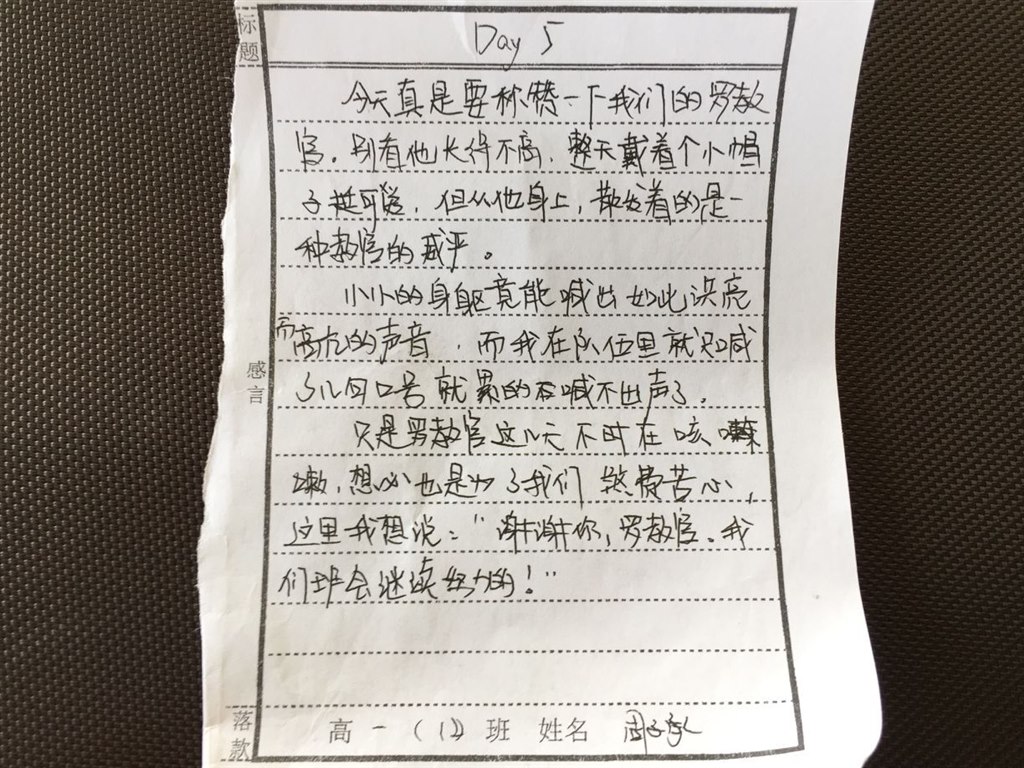 标题
Day 5
今天真是要称赞一下我们的罗教
官。别看他长得不高，整天戴着个小帽
子挺可爱，但从他身上，散发着的是一
种教官的威严。
小小的身躯竟能喊出如此洪亮
而高亢的声音，而我在队伍里就只喊
了几句口号就累的在喊不出声了。
感言
只是罗教官这几天不时在咳嗽
嗽，想必也是为了我们煞费苦心，
这里我想说：“谢谢你，罗教官。我
们班会继续努力的！”
落款
高一（12）班 姓名 周子